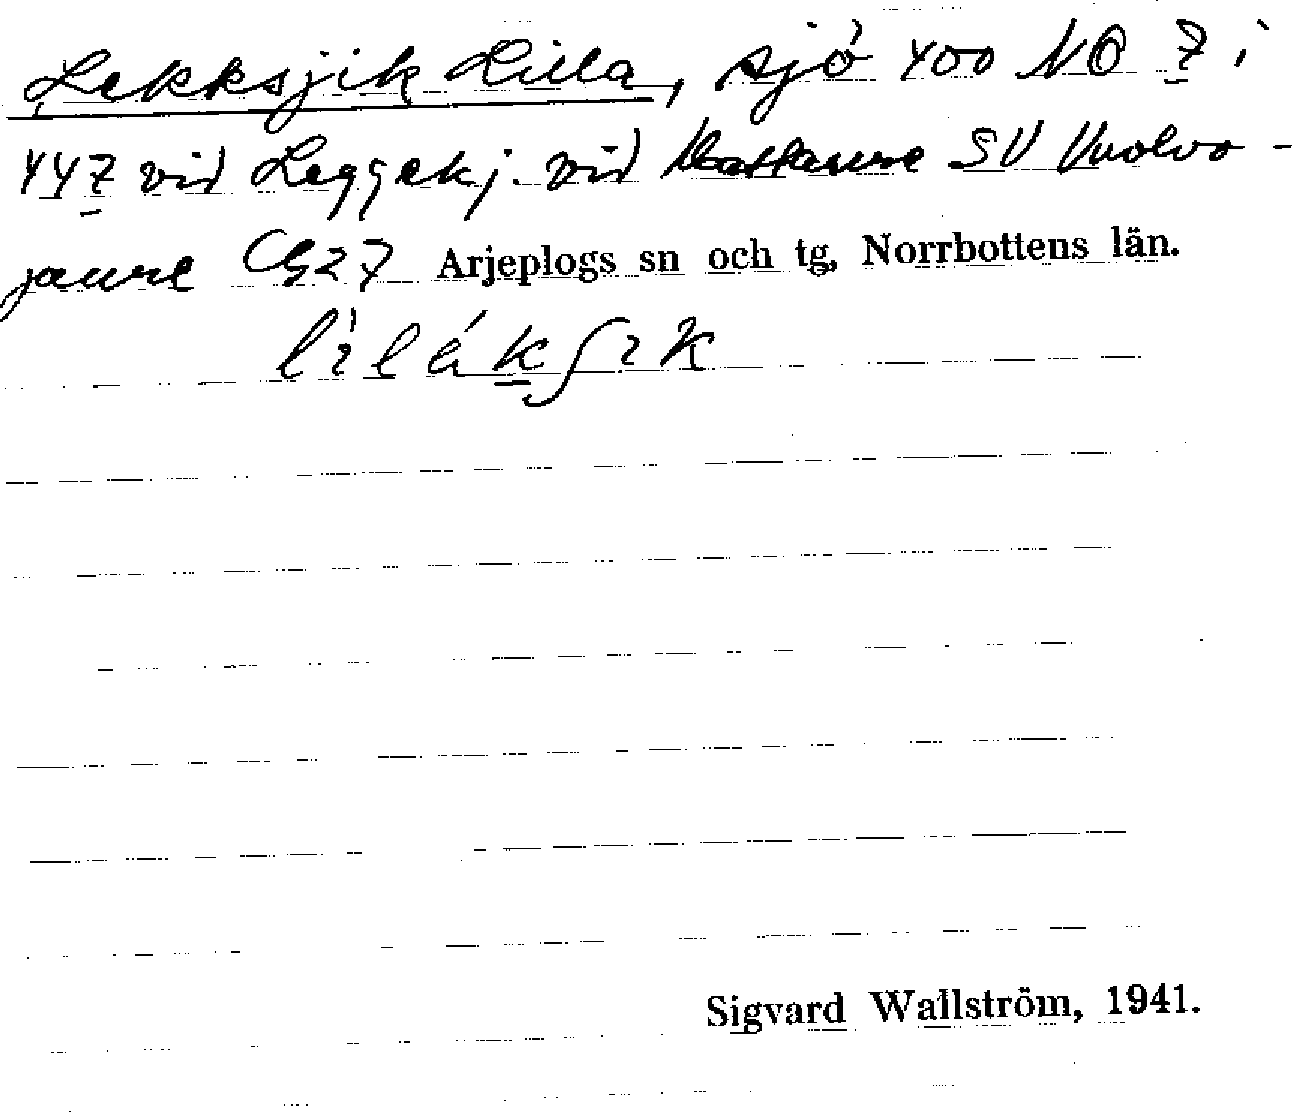 Lekksjik Lilla, sjö 400 NO 7 i
447 vid Leggekj. vid SV Vuolvo-
jaure Cg27 Arjeplogs sn och tg, Norrbottens län.
lìlákʃık
Sigvard Wallström, 1941.